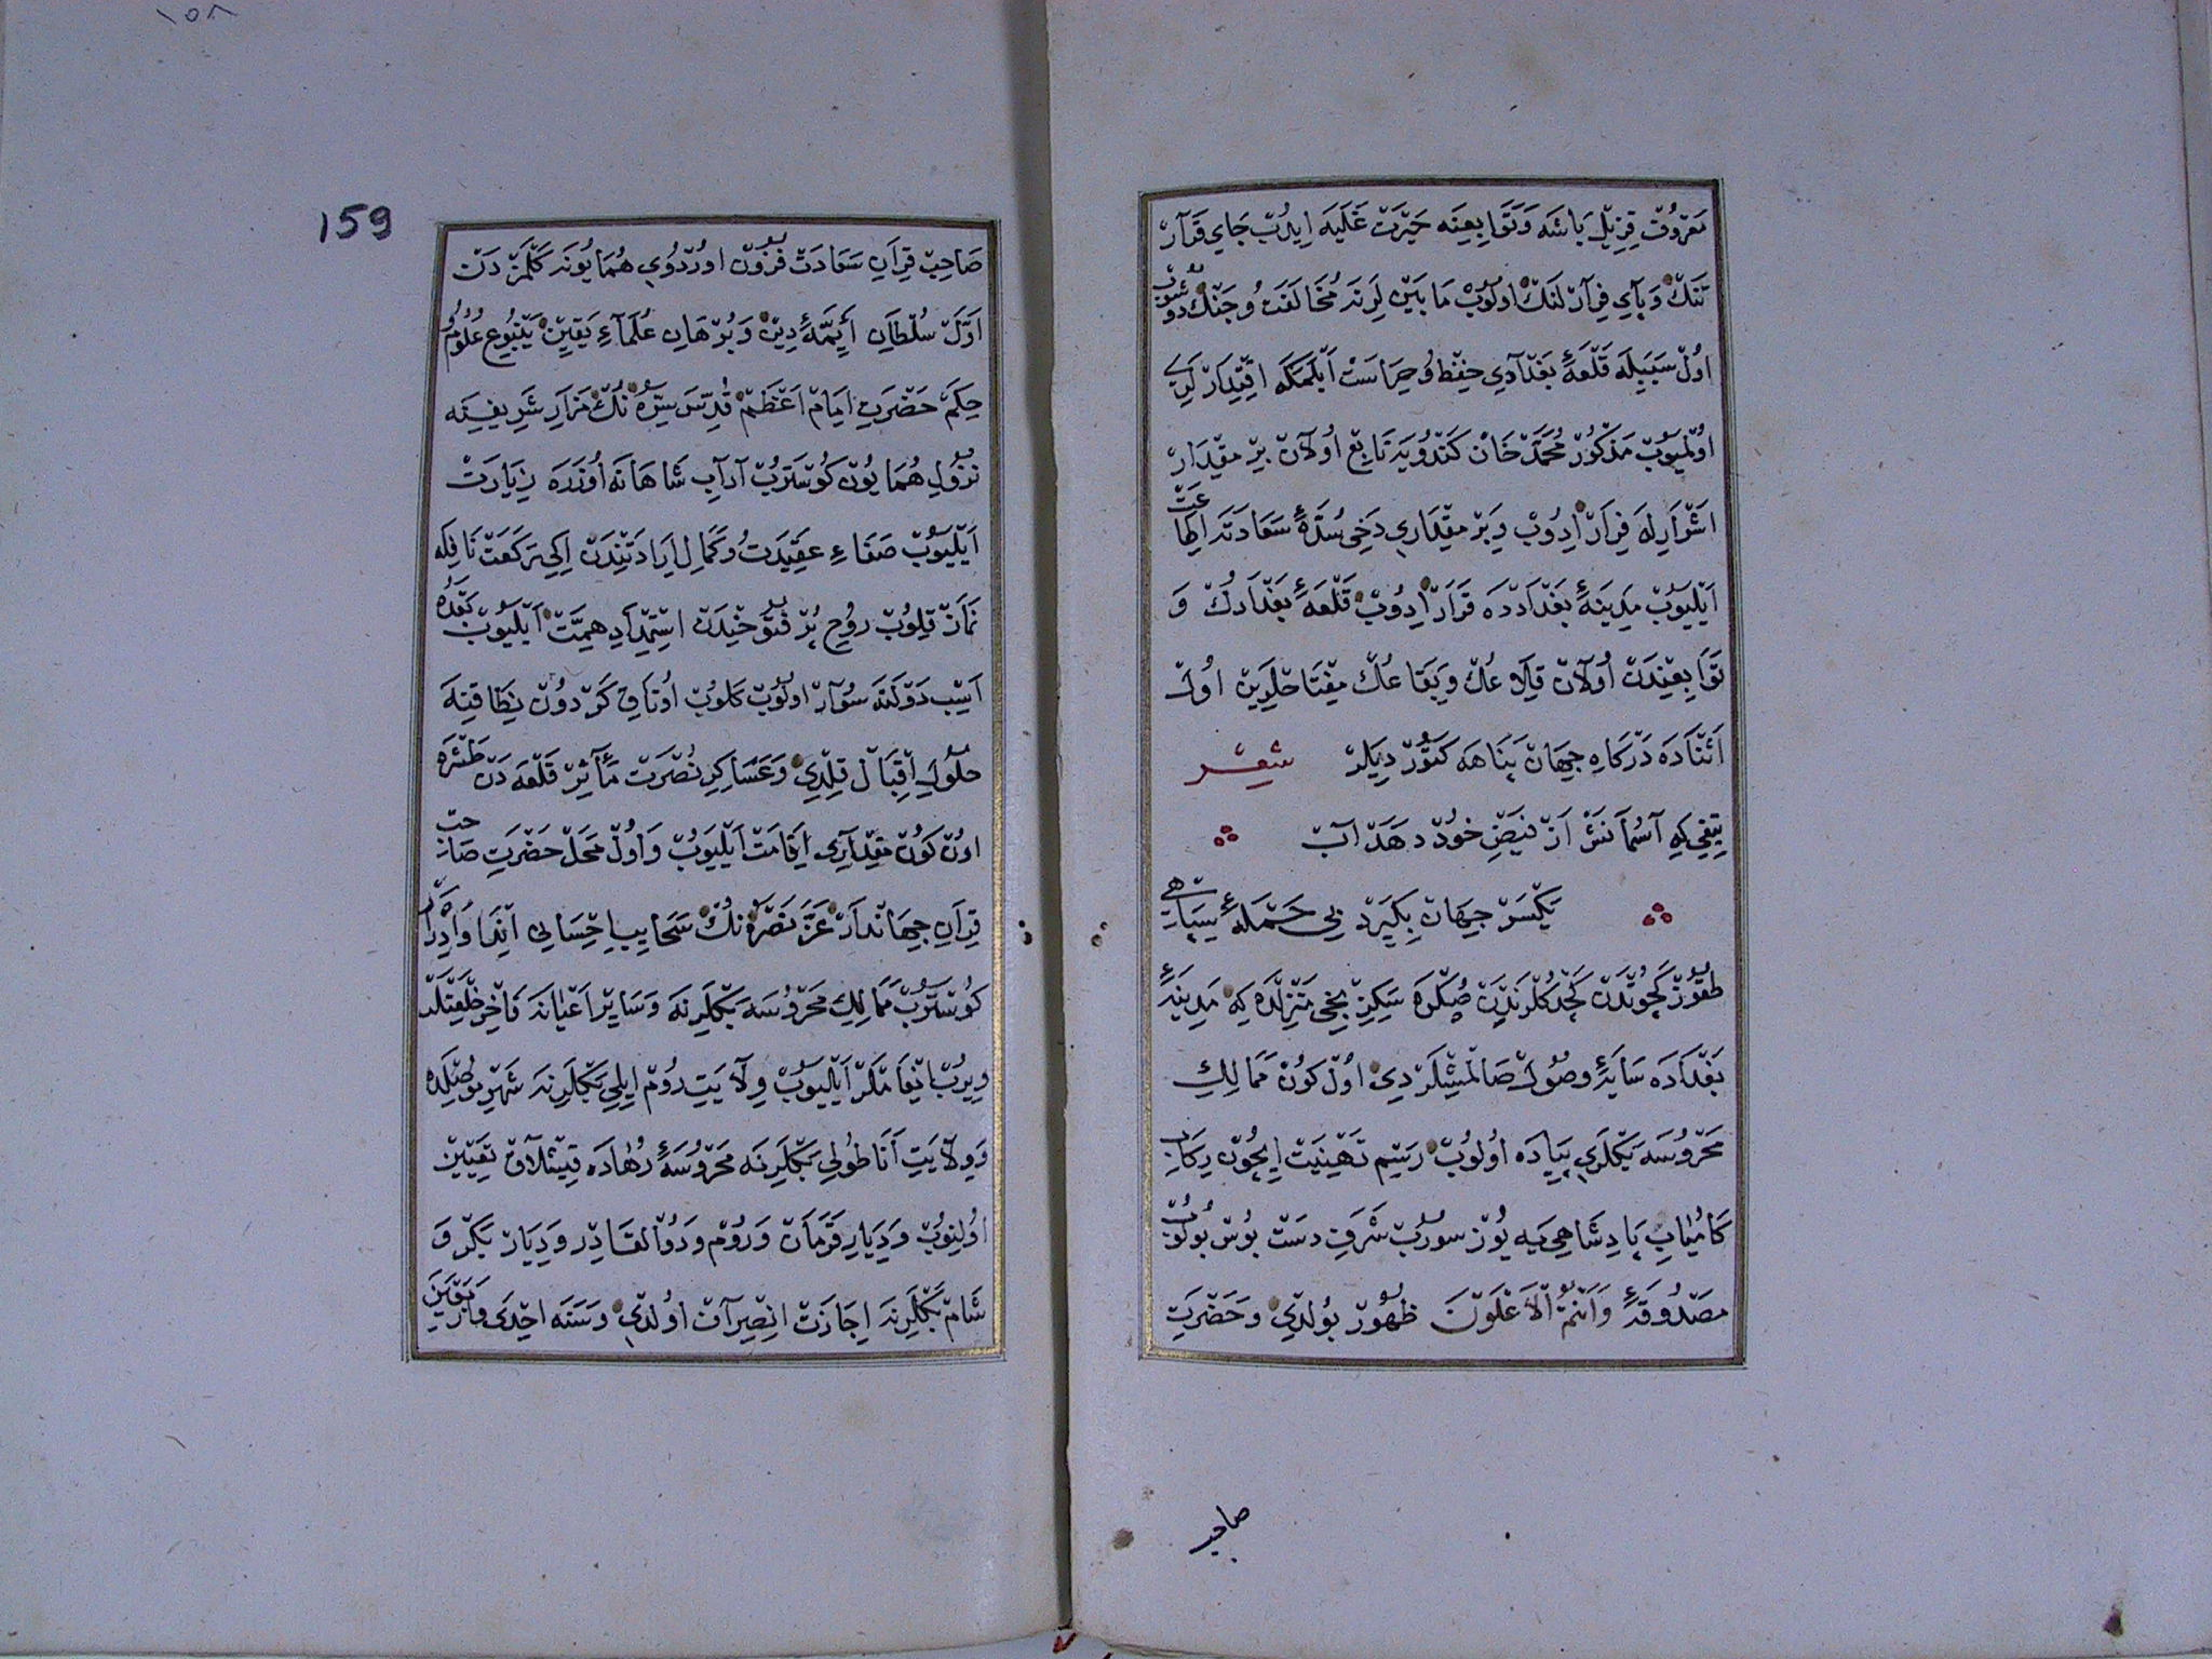 معروف قزیل باشه و توابعنه حیرت غلیه ایدب جای قرار
تنك و پای فرار لنك اولوب مابین لرنه مخالفت و جنك دوشوب
اول سببیله قلعهٔ بغدادی حفظ و حراست ایلمکه اقتدارلری
اولمیوب مذکور محمد خان کندویه تابع اولان بر مقدار
اشرار یله فرار ایدوب و بر مقداری دخی سدهٔ سعادته اطاعت
ایلیوب مدینهٔ بغدادده قرار ایدوب قلعهٔ بغدادك و
توابعندن اولان قلاعك و بقاعك مفتاحلرین اول
اثناده درکاه جهان پناهه کتوردیلر شعر
تیغی که آسمانش از فیض خود دهد آب
یکسر جهان بگیرد بی حملهٔ سپاهی
طقوز کچوتدن کچدکلرندن صکره سکزنجی منزلده که مدینهٔ
بغداده سایهٔ وصول صالمشلردی اول کون ممالك
محروسه بکلری پیاده اولوب رسم تهنیت ایچون رکاب
کامیاب پادشاهی یه یوز سورب شرف دست بوس بولوب
مصدوقهٔ وانتم الاعلون ظهور بولدی و حضرت
صاحب
159
١٥٨
صاحب قران سعادت فزون اوردوی همایونه کلمزدن
اول سلطان أیمهٔ دین و برهان علماء یقین ینبوع علوم و
حکم حضرت امام اعظم قدس سره نك مزار شریفنه
نزول همایون کوسترب آداب شاهانه اوزره زیارت
ایلیوب صفاء عقیدت و کمال ارادتندن ایکی رکعت نافله
نماز قلوب روح پر فتوحندن استمداد همت ایلیوب بعده
اسب دولته سوار اولوب کلوب اوتاق کردون نطاقنه
حلول اقبال قلدی و عساکر نصرت مأثر قلعه دن طشره
اون کون مقداری اقامت ایلیوب و اول محل حضرت صاحب
قران جهاندار عز نصره نك سحایب احسانی اندا و ادرار
کوسترب ممالك محروسه بکلرنه و سایر اعیانه فاخر خلعتلر
ویرب انعاملر ایلیوب ولایت روم ایلی بکلرنه شهر موصلده
و ولایت اناطولی بکلرنه محروسهٔ رهاده قیشلاق تعیین
اولنوب و دیار قرمان و روم و دوالقادر و دیار بکر و
شام بکلرنه اجازت انصراف اولدی و سنه احدی واربعین